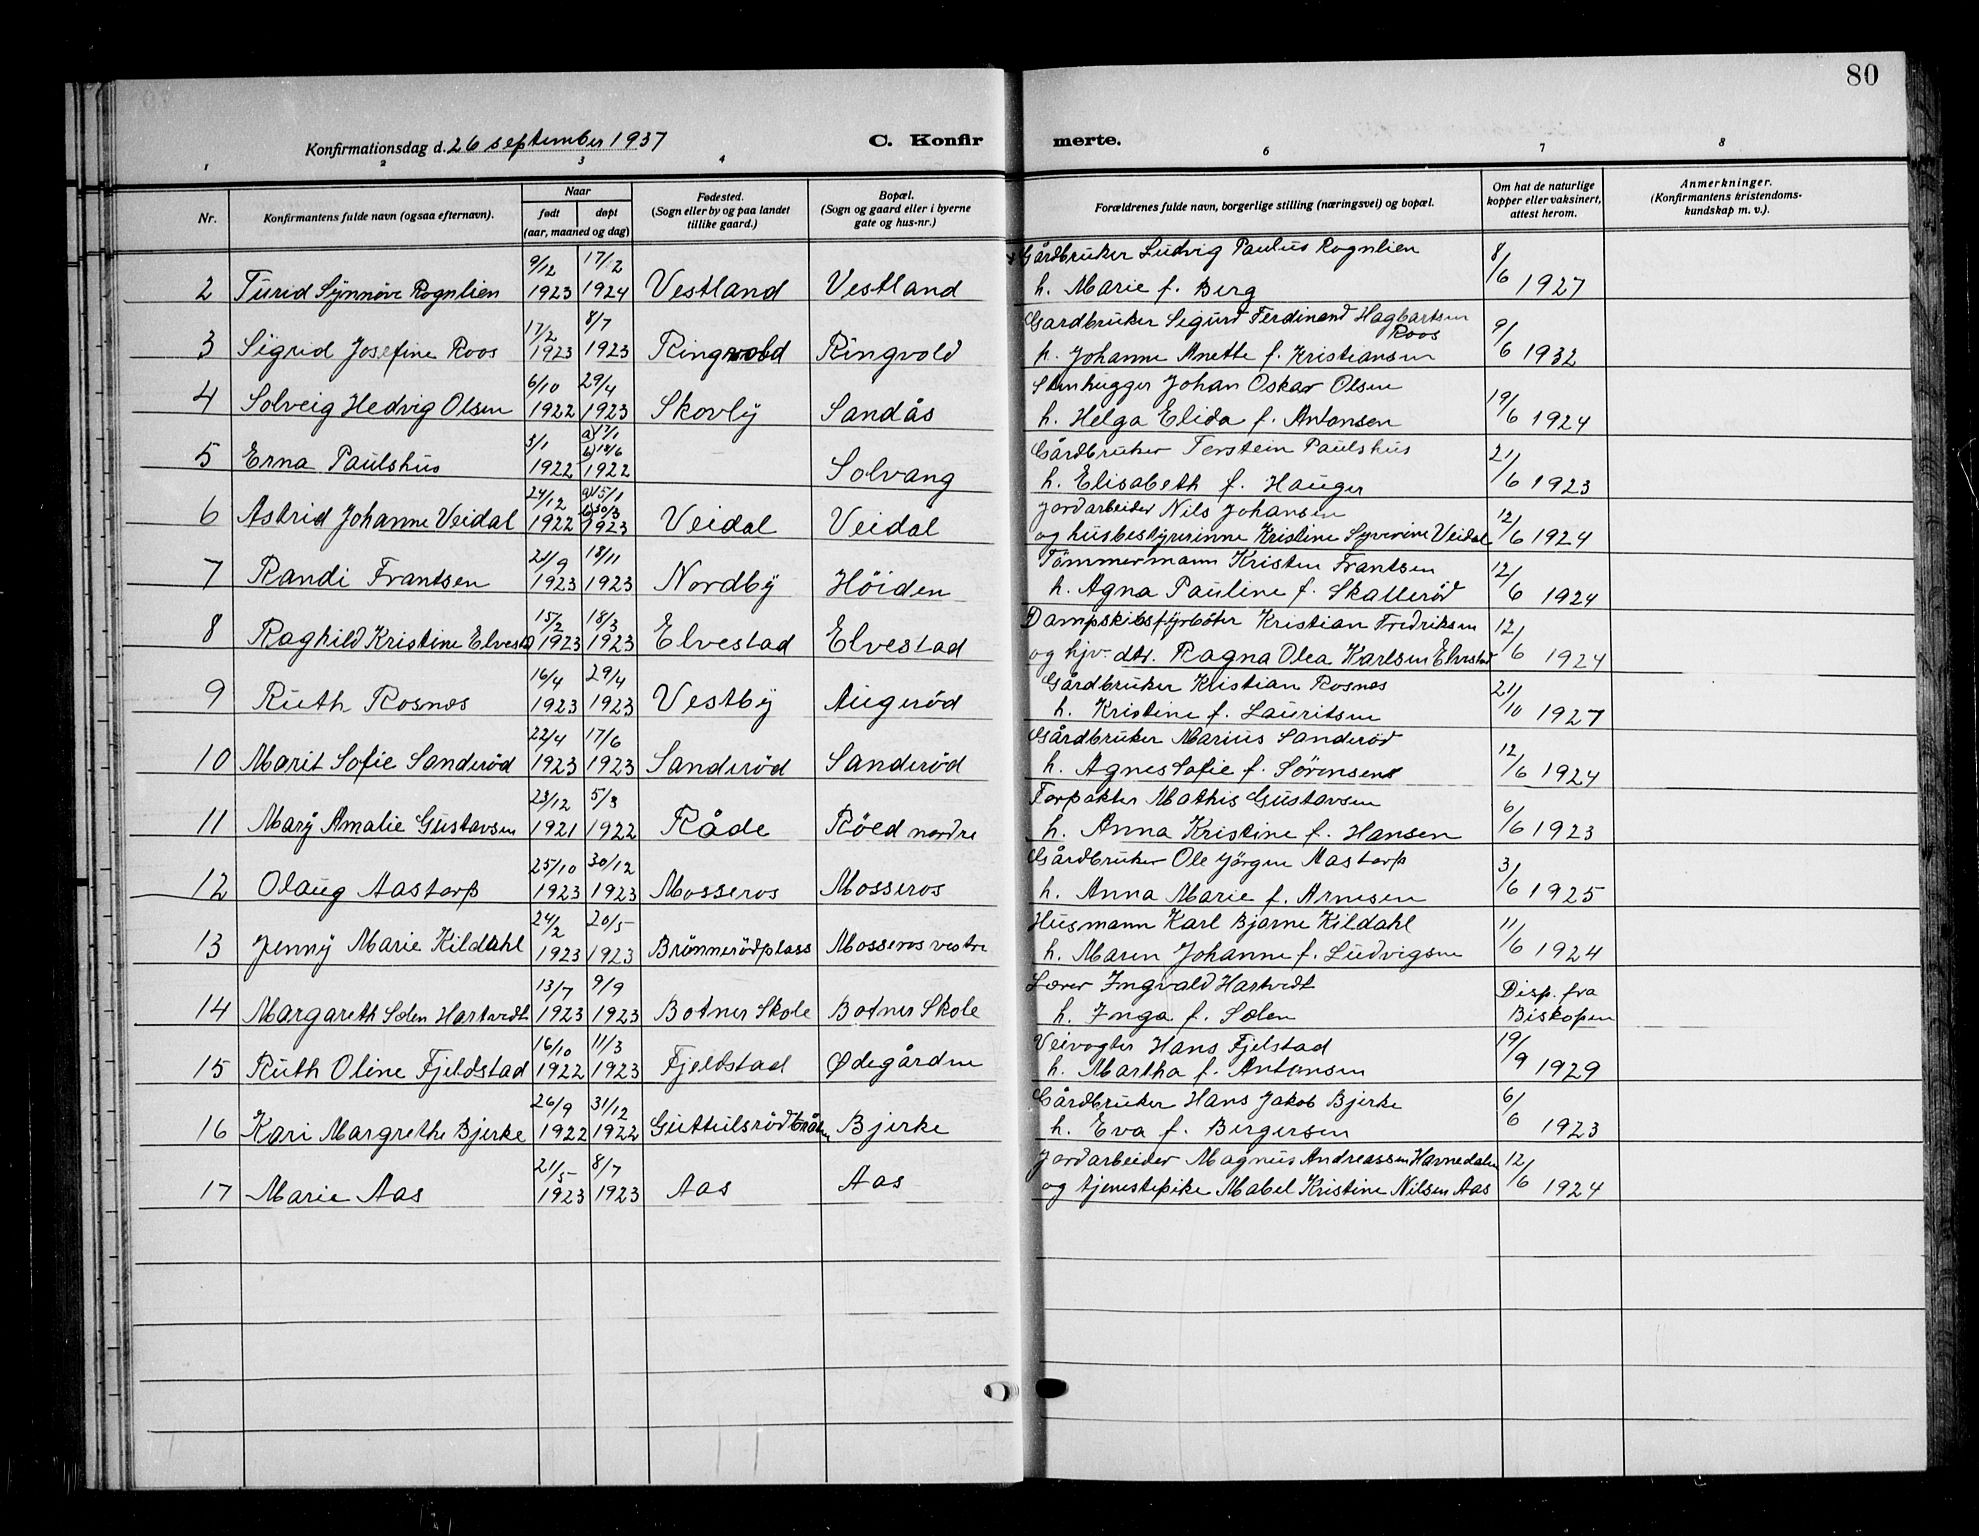 80
Konfirmationsdag d. 26 september 1937
C. Konfirmerte.
1 2 3 4 6 7 8
Nr.
Konfirmantens fulde navn (ogsaa efternavn).
Naar
født døpt
(aar, maaned og dag)
Fødested.
(Sogn eller by og paa landet
tillike gaard.)
Bopæl.
(Sogn og gaard eller i byerne
gate og hus-nr.)
Forældrenes fulde navn, borgerlige stilling (næringsvei) og bopæl.
Om hat de naturlige
kopper eller vaksinert,
attest herom.
Anmerkninger.
(Konfirmantens kristendoms-
kundskap m. v.).
9/12 17/2 Gårdbruker Ludvig Paulus Rognlien 8/6
2 Turid Synnöve Rognlien 1923 1924 Vestland Vestland h. Marie f. Berg 1927
17/2 8/7 Gardbruker Sigurd Ferdinand Hagbartsen Roos 9/6
3 Sigrid Josefine Roos 1923 1923 Ringvold Ringvold h. Johanne Anette f. Kristiansen 1932
6/10 29/4 Stenhugger Johan Oskar Olsen 19/6
4 Solveig Hedvig Olsen 1922 1923 Skovly Sandås h. Helga Elida f. Antonsen 1924
3/1 a) 17/1 b) 18/6 Gårdbruker Torstein Paulshus 21/6
5 Erna Paulshus 1922 1922 Solvang h. Elisabeth f. Hauger 1923
24/12 a) 15/1 b) 30/3 Jordarbeider Nils Johansen 12/6
6 Astrid Johanne Veidal 1922 1923 Veidal Veidal og husbestyrerinne Kristine Syverine Veidal 1924
21/9 18/11 Tömmermann Kristen Frantsen 12/6
7 Randi Frantsen 1923 1923 Nordby Höiden h. Agna Pauline f. Skalleröd 1924
15/2 18/3 Dampskibsfyrböter Kristian Fredriksen 12/6
8 Raghild Kristine Elvestad 1923 1923 Elvestad Elvestad og hjv. dtr. Ragna Olea Karlsen Elvestad 1924
16/4 29/4 Gårdbruker Kristian Rosnes 21/10
9 Ruth Rosnes 1923 1923 Vestby Augeröd h. Kristine f. Lauritsen 1927
22/4 17/6 Gårdbruker Marius Sanderöd 12/6
10 Marit Sofie Sanderöd 1923 1923 Sanderöd Sanderöd h. Agnes Sofie f. Sörensen 1924
23/12 5/3 Forpakter Mathis Gustavsen 6/6
11 Mary Amalie Gustavsen 1921 1922 Råde Röed nordre h. Anna Kristine f. Hansen 1923
25/10 30/12 Gårdbruker Ole Jörgen Aastorp 3/6
12 Olaug Aastorp 1923 1923 Mosseros Mosseros h. Anna Marie f. Arnesen 1925
24/2 20/5 Husmann Karl Bjarne Kildahl 11/6
13 Jenny Marie Kildahl 1923 1923 Brönnerödplass Mosseros vestre h. Maren Johanne f. Ludvigsen 1924
13/7 9/9 Lærer Ingvald Hartvedt Disp. fra
14 Margareth Solen Hartvedt 1923 1923 Botner Skole Botner Skole h. Inga f. Solen Biskopen
16/10 11/3 Veivogter Hans Fjelstad 19/9
15 Ruth Oline Fjeldstad 1922 1923 Fjeldstad Ødegården h. Martha f. Antonsen 1929
26/9 31/12 Gårdbruker Hans Jakob Bjerke 6/6
16 Kari Margrethe Bjerke 1922 1922 Guttulsrödbråten Bjerke h. Eva f. Bergersen 1923
21/5 8/7 Jordarbeider Magnus Andreassen Havnedalen 12/6
17 Marie Aas 1923 1923 Aas Aas og tjenestepike Mabel Kristine Nilsen Aas 1924